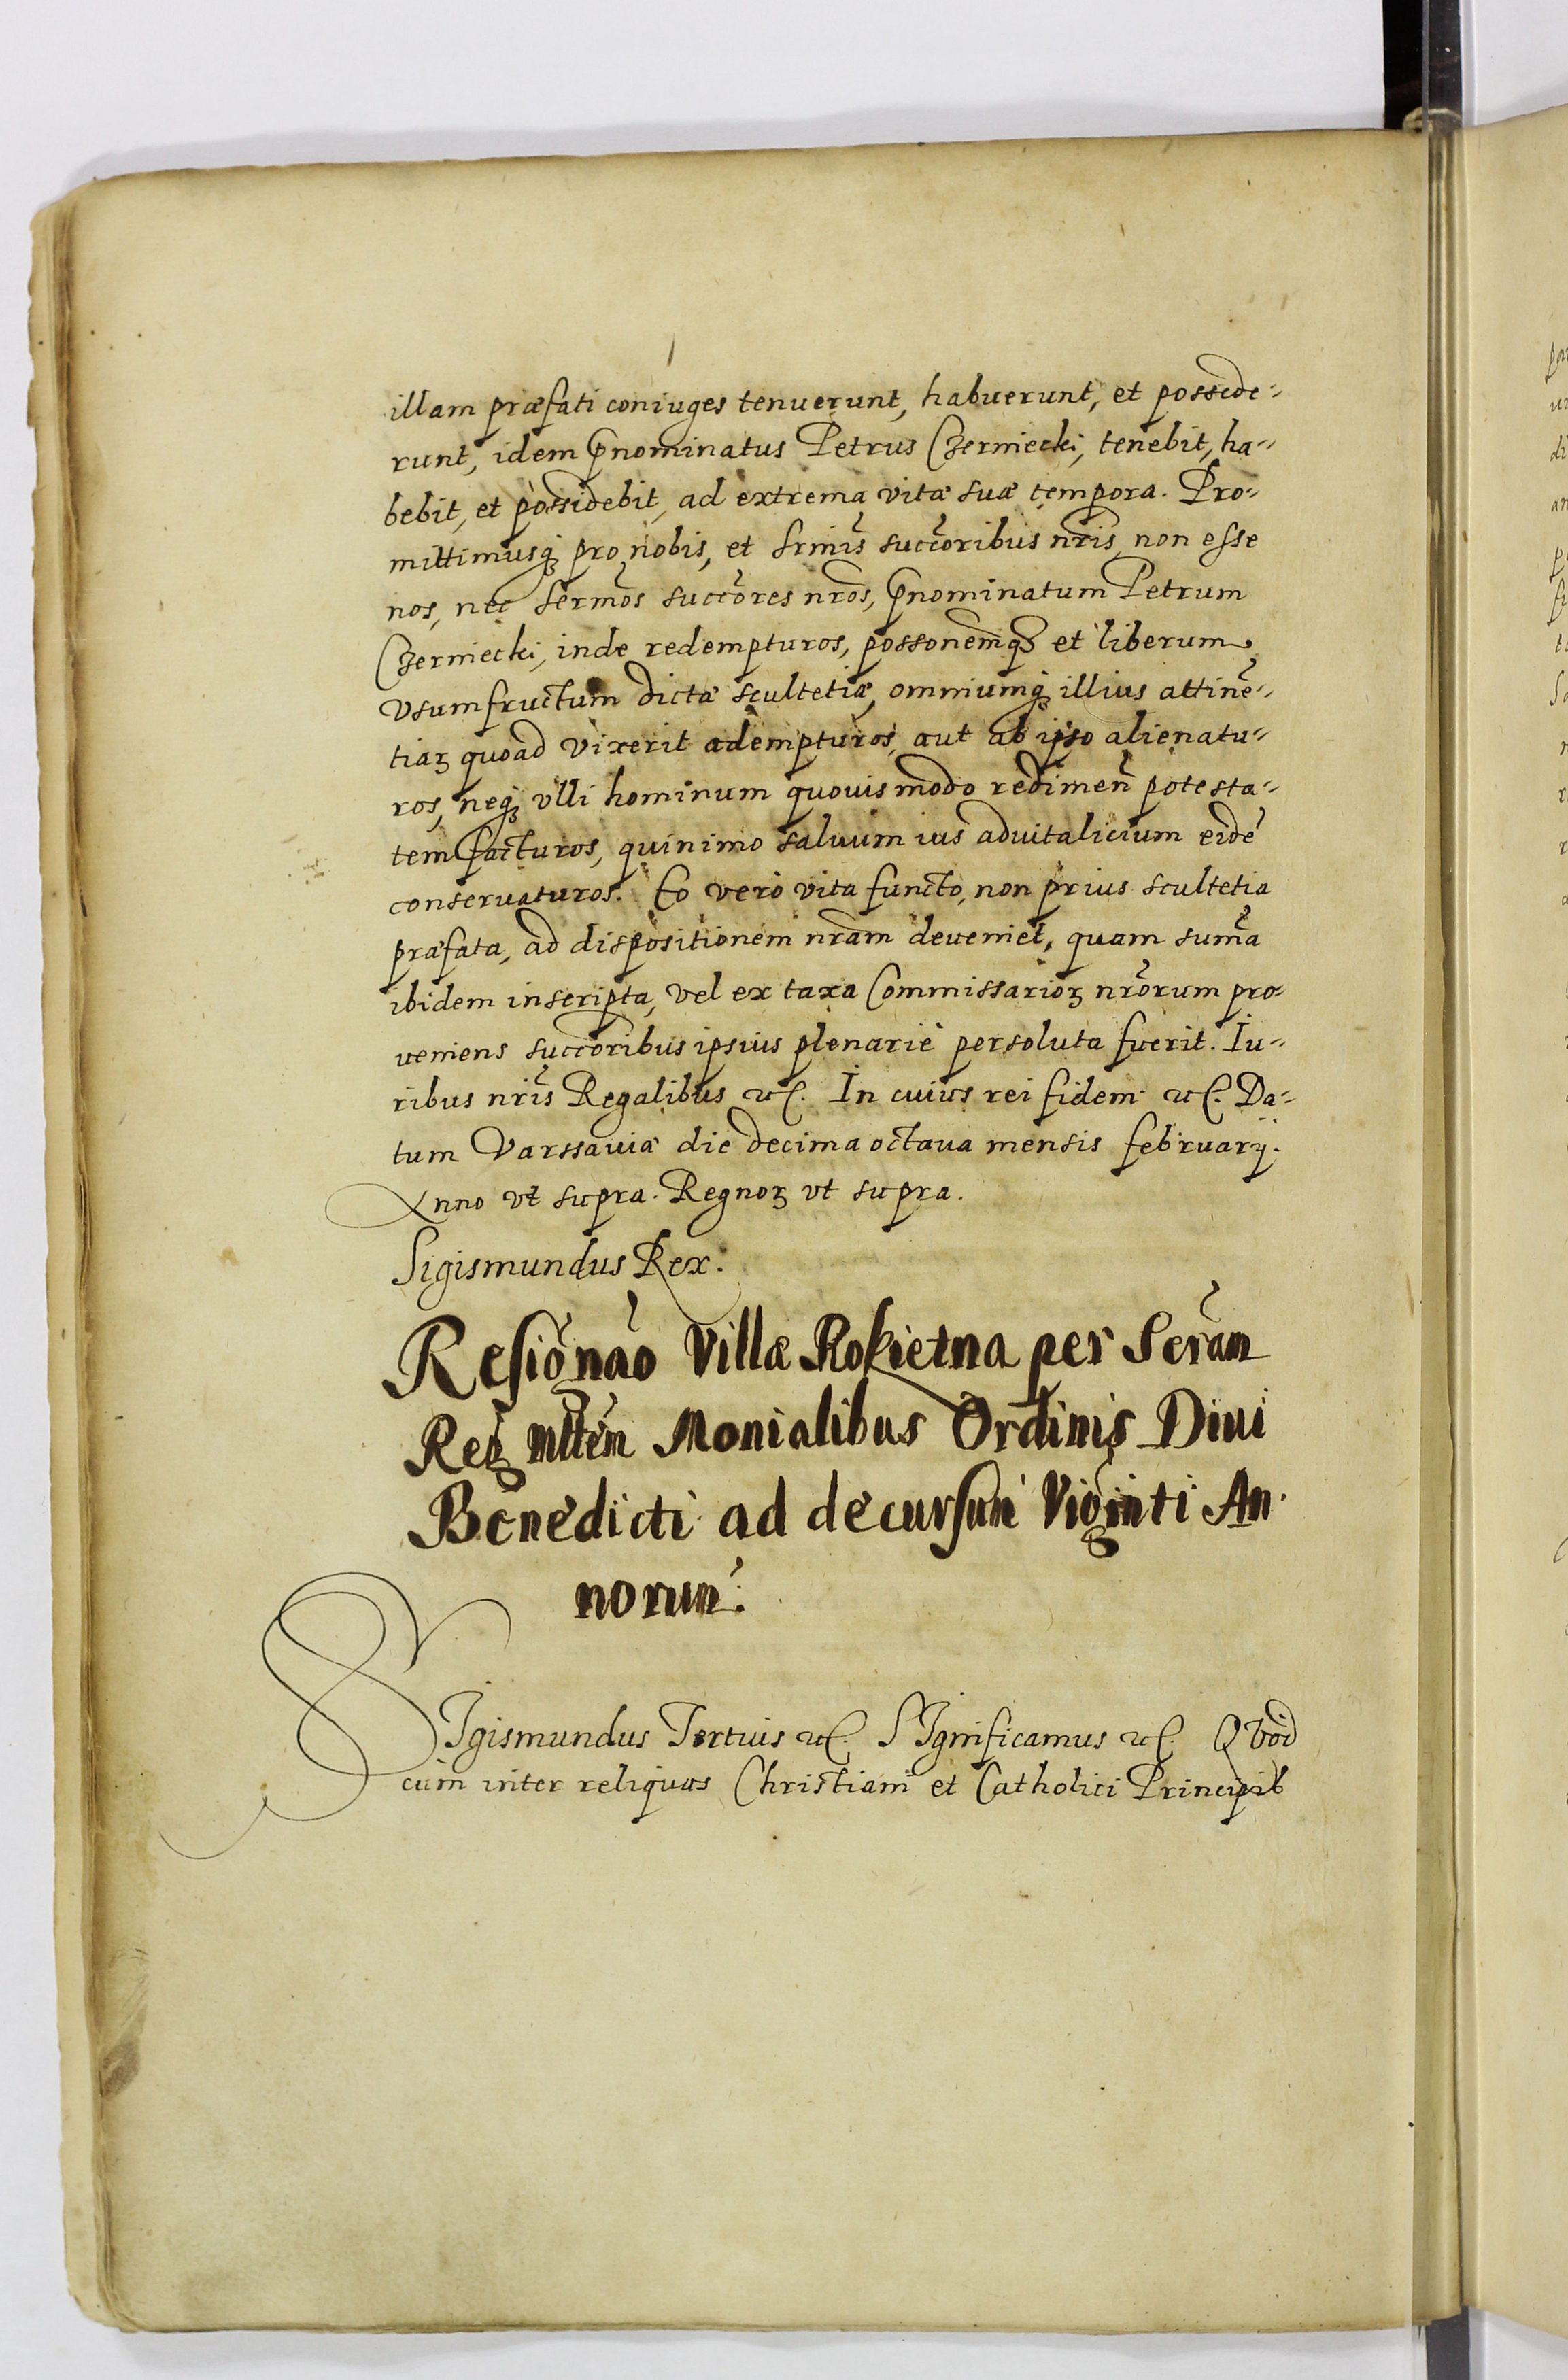 illam præfati coniuges tenuerunt, habuerunt, et possede-
runt, idem p̃nominatus Petrus Czerniecki, tenebit, ha-
bebit, et possidebit, ad extrema vitæ suæ tempora. Pro-
mittimusq́ꝫ pro nobis, et srm̃is succ̃oribus nr̃is non esse
nos, nec serm̃os succ̃ores nr̃os, p̃nominatum Petrum
Czerniecki, inde redempturos, posso̅nemq́ꝫ et liberum
vsumfructum dictæ scultetiæ, omniumq́ꝫ illius attinẽ-
tiaꝝ quoad vixerit adempturos, aut ab ipso alienatu-
ros, neq́ꝫ vlli hominum quouis modo redimen̄ potesta-
tem facturos, quinimo saluum ius aduitalicium eidē
conservaturos. Eo vero vita functo, non prius scultetia
præfata, ad dispositionem nr̃am deveniet, quam sum̃a
ibidem inscripta, vel ex taxa Commissarioꝝ nr̃orum pro-
veniens succ̃oribus ipsius plenarie persoluta fuerit. Iu-
ribus nr̃is Regalibus ꝛc̃. In cuius rei fidem ꝛc̃. Da-
tum Varssaviæ die decima octava mensis februarÿ.
Anno vt supra. Regnoꝝ vt supra.
Sigismundus Rex.
Resign̄ao Villæ Rokietna per Serãm
Regꝫ Mttem̃ Monialibus Ordinis Diui
Benedicti ad decursum̄ Viginti An-
norum̄.
SIgismundus Tertius ꝛc̃. SIgnificamus ꝛc̃. QVod
cum inter reliquas Christiani et Catholici Principis